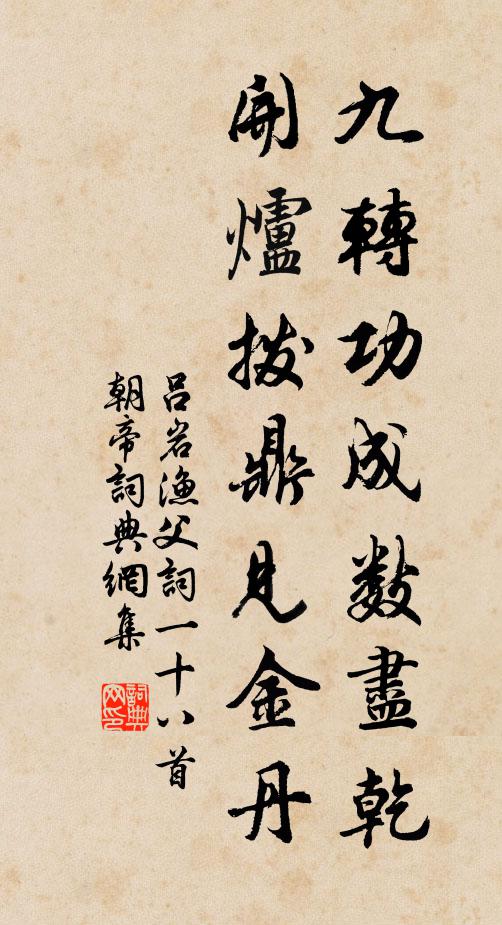 九轉功成數盡乾
開爐撥鼎見金丹
吕岩漁父詞一十八首
朝帝詞典網集
詞典网印